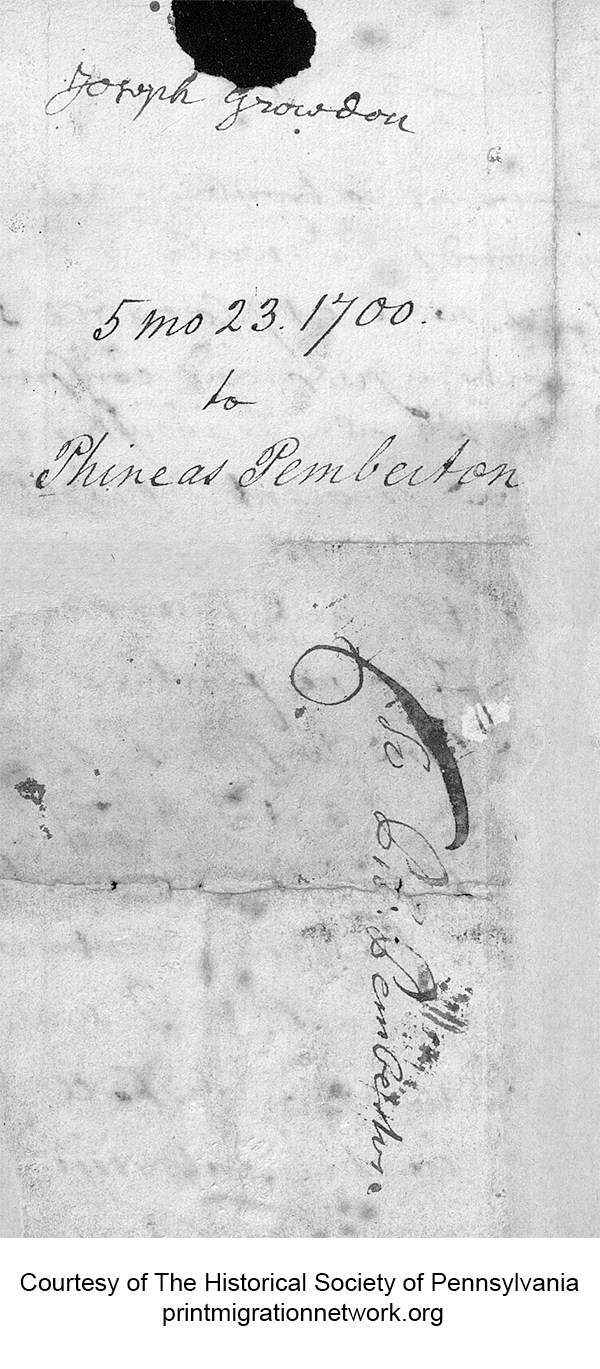 Joseph Growdon
5 mo 23. 1700.
to
Phineas Pemberton
To
Pemberton
Courtesy of The Historical Society of Pennsylvania
printmigrationnetwork.org